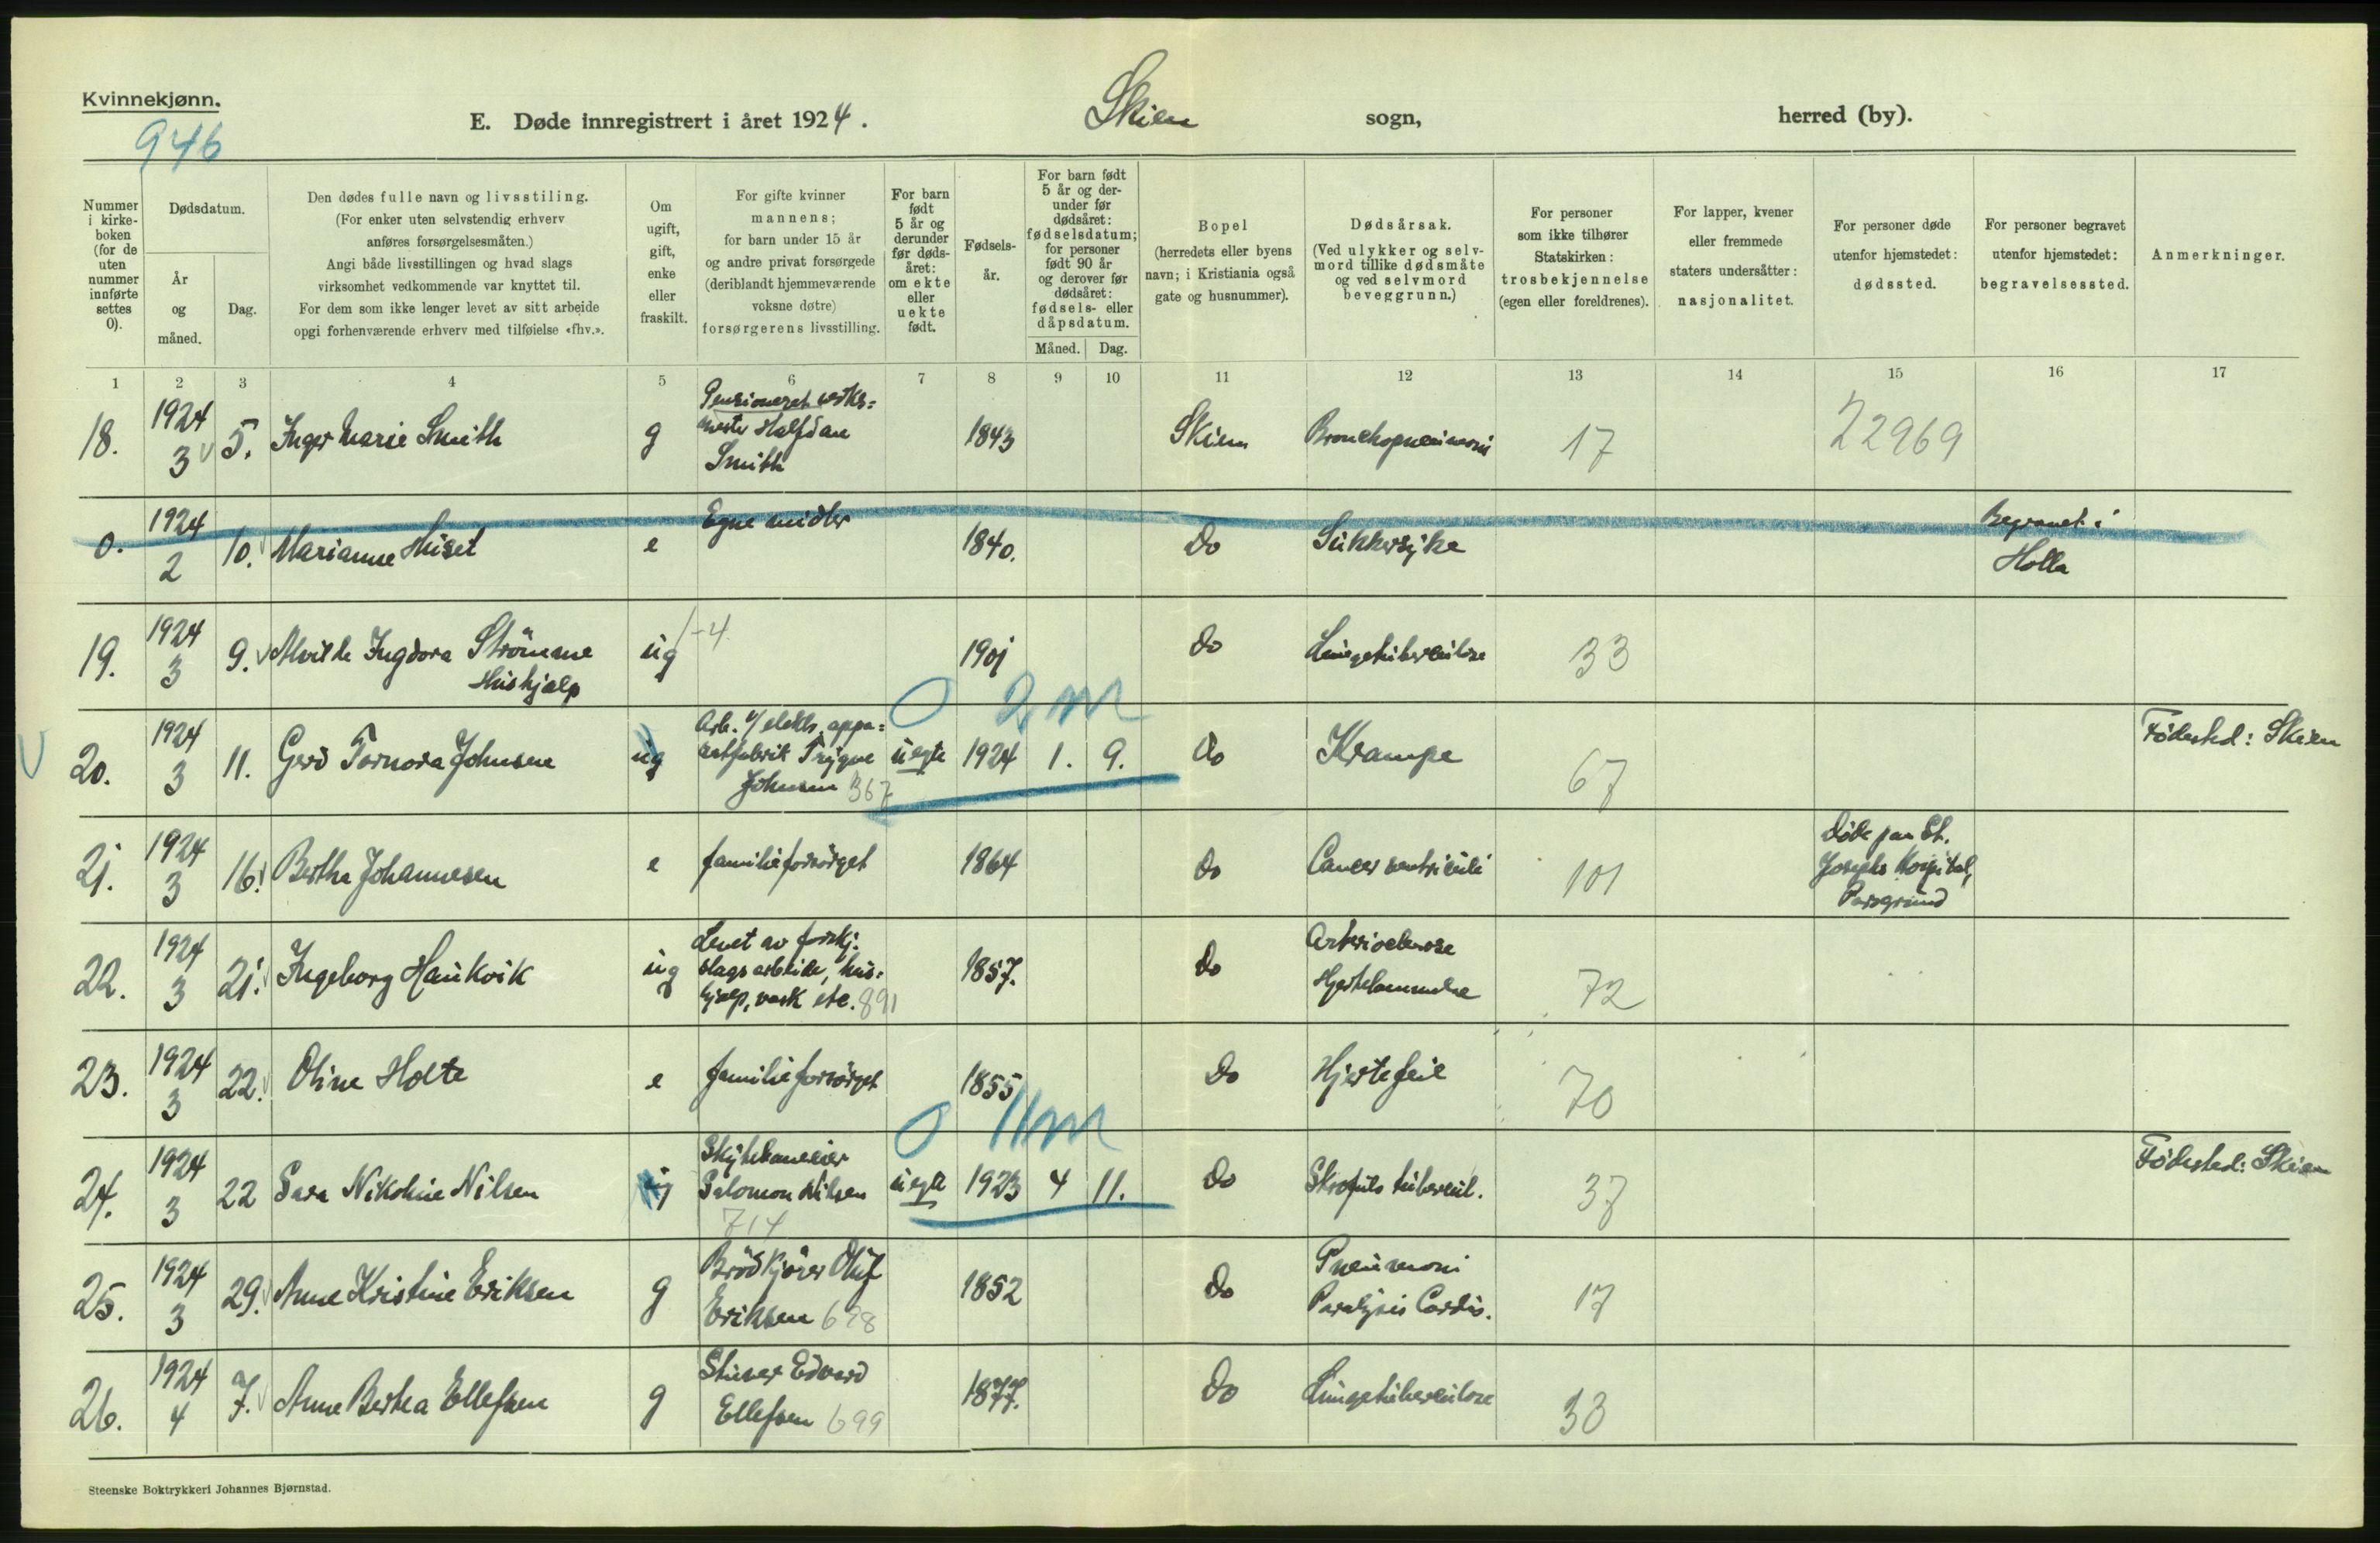 Kvinnekjønn.
946
E. Døde innregistrert i året 1924.
Skien sogn, herred (by).
Nummer i kirke- boken (for de uten nummer innførte settes 0).
Dødsdatum.
År og måned.
Dag.
Den dødes fulle navn og livsstiling.
(For enker uten selvstendig erhverv
anføres forsørgelsesmåten.)
Angi både livsstillingen og hvad slags
virksomhet vedkommende var knyttet til.
For dem som ikke lenger levet av sitt arbeide
opgi forhenværende erhverv med tilføielse «fhv.».
Om ugift, gift, enke eller fraskilt.
For gifte kvinner
mannens;
for barn under 15 år
og andre privat forsørgede
(deriblandt hjemmeværende
voksne døtre)
forsørgerens livsstilling.
For barn født 5 år og derunder før døds- året: om ekte eller uekte født.
Fødsels- år.
For barn født 5 år og der- under før dødsåret: fødselsdatum; for personer født 90 år og derover før dødsåret: fødsels- eller dåpsdatum.
Måned. Dag.
Bopel
(herredets eller byens
navn; i Kristiania også
gate og husnummer).
Dødsårsak.
(Ved ulykker og selv-
mord tillike dødsmåte
og ved selvmord
beveggrunn.)
For personer
som ikke tilhører
Statskirken:
trosbekjennelse
(egen eller foreldrenes).
For lapper, kvener
eller fremmede
staters undersåtter:
nasjonalitet.
For personer døde
utenfor hjemstedet:
dødssted.
For personer begravet
utenfor hjemstedet:
begravelsessted.
Anmerkninger.
1 2 3 4 5 6 7 8 9 10 11 12 13 14 15 16 17
18. 1924 3 5. Inger Marie Smith g Pensioneret verks= mester Halfdan Smith 1843 Skien Bronchopneumoni 17 22969
0. 1924 2 10. Marianne Huset e Egne midler 1840. Do Sukkersyke Begravet i Holla
19. 1924 3 9. Alvilde Ingdora Strömme Hushjælp ug 1-4 1901 do Lungetuberkulose 33
0 2 m
20. 1924 3 11. Gerd Tornora Johnsen ug Arb. v/ elektr. appa= ratfabrik Trygve Johnsen 367 uegte 1924 1. 9. do Krampe 67 Födested: Skien
21. 1924 3 16. Berthe Johannesen e familieforsörget 1864 do Cancer ventriculi 101 Döde paa St. Josephs Hospital, Porsgrund
22. 1924 3 21. Ingeborg Haukvik ug Levet av forskj. slags arbeide, hus= hjælp, vask etc. 891 1857. do Arteriosclerose Hjertelammelse 72
23. 1924 3 22. Oline Holte e familieforsörget 1855 Do Hjertefeil 70
0 11 m
24. 1924 3 22 Sara Nikoline Nilsen ug Skytebaneeier Salomon Nilsen 714 uegte 1923 4 11. Do Skrofuls tuberkul. 37 Födested: Skien
25. 1924 3 29. Anne Kristine Eriksen g Brödkjörer Oluf Eriksen 698 1852 Do Pneumoni Paralysis Cordis. 17
26. 1924 4 7. Anne Bertea Ellefsen g Stuer Edvard Ellefsen 699 1877. Do Lungetuberkulose 33
Steenske Boktrykkeri Johannes Bjørnstad.